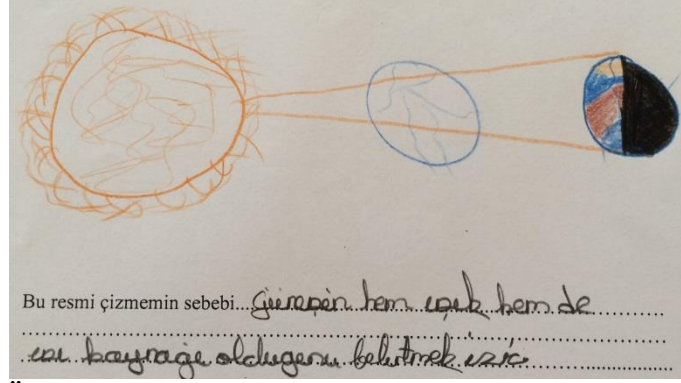 Bu resmi çizmemin sebebi...Güneşin hem ışık hem de
ısı kaynağı olduğunu belirtmek için